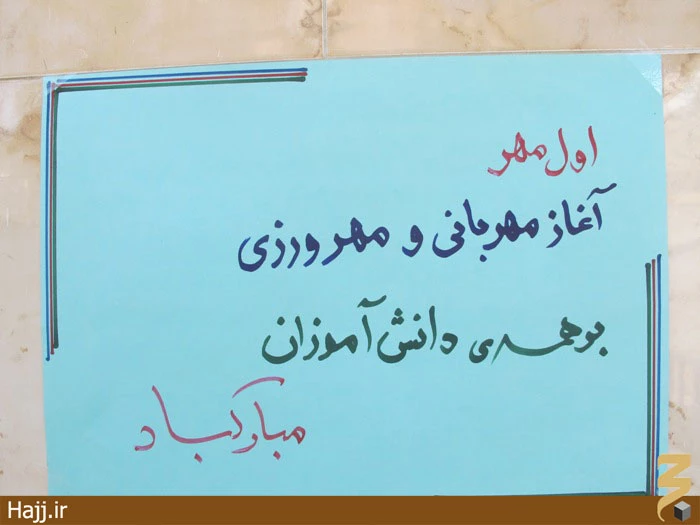 اول مهر
آغاز مهربانی و مهرورزی
بر همه‌ی دانش آموزان
مبارکباد
Hajj.ir